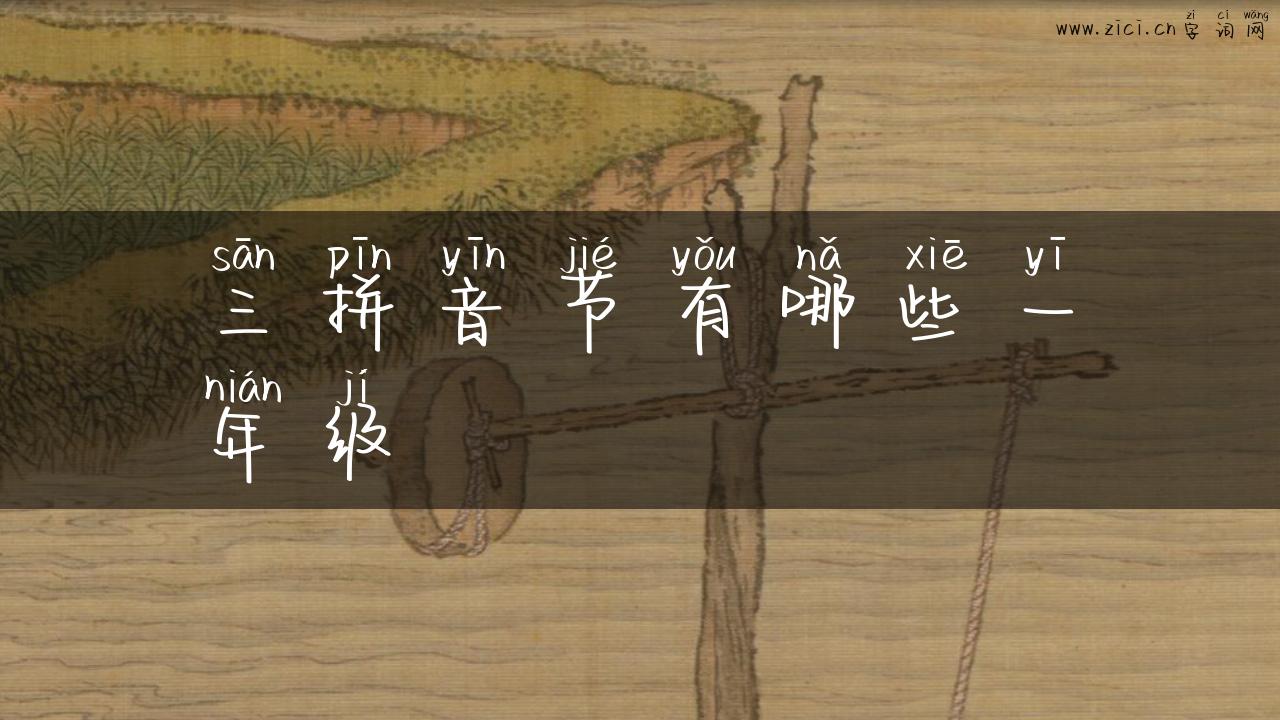 zì cí wǎng
www.zici.cn 字 词 网
sān pīn yīn jié yǒu nǎ xiē yī
三 拼 音 节 有 哪 些 一
nián jí
年 级